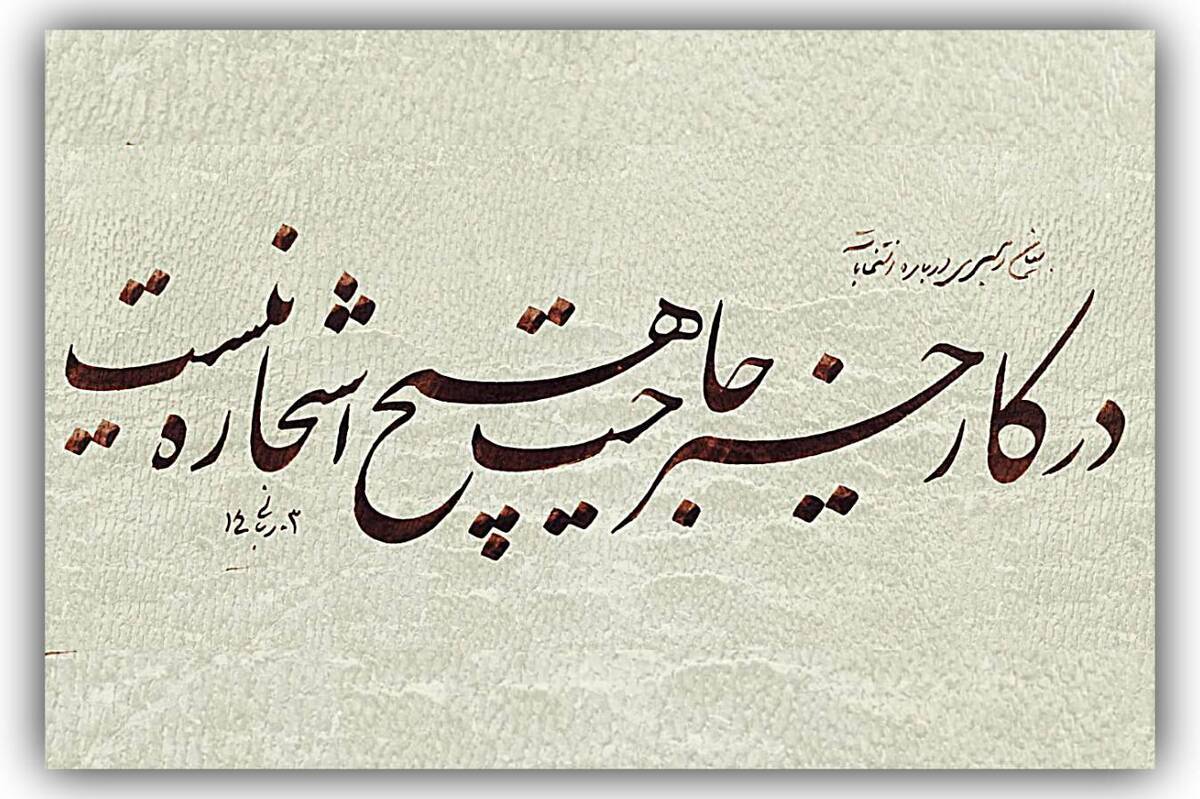 بیان رهبری درباره انتخابات
در کار خیر حاجت هیچ استخاره نیست
ربانی ۱۴۰۳